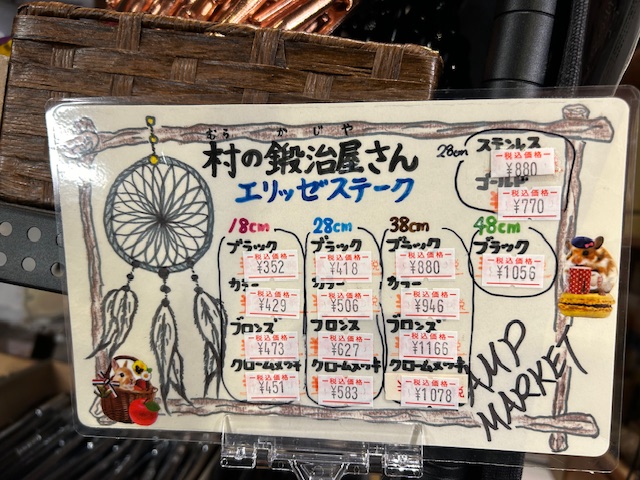 むら かじや
村の鍛冶屋さん
エリッゼステーク
28cm
ステンレス
税込価格
¥880
税込価格
¥770
18cm
ブラック
税込価格
¥352
税込価格
¥429
ブロンズ
税込価格
¥473
クロームメッキ
税込価格
¥451
28cm
ブラック
税込価格
¥418
カラー
税込価格
¥506
ブロンズ
税込価格
¥627
クロームメッキ
税込価格
¥583
38cm
ブラック
税込価格
¥880
カラー
税込価格
¥946
ブロンズ
税込価格
¥1166
クロームメッキ
税込価格
¥1078
48cm
ブラック
税込価格
¥1056
AMP
MARKET